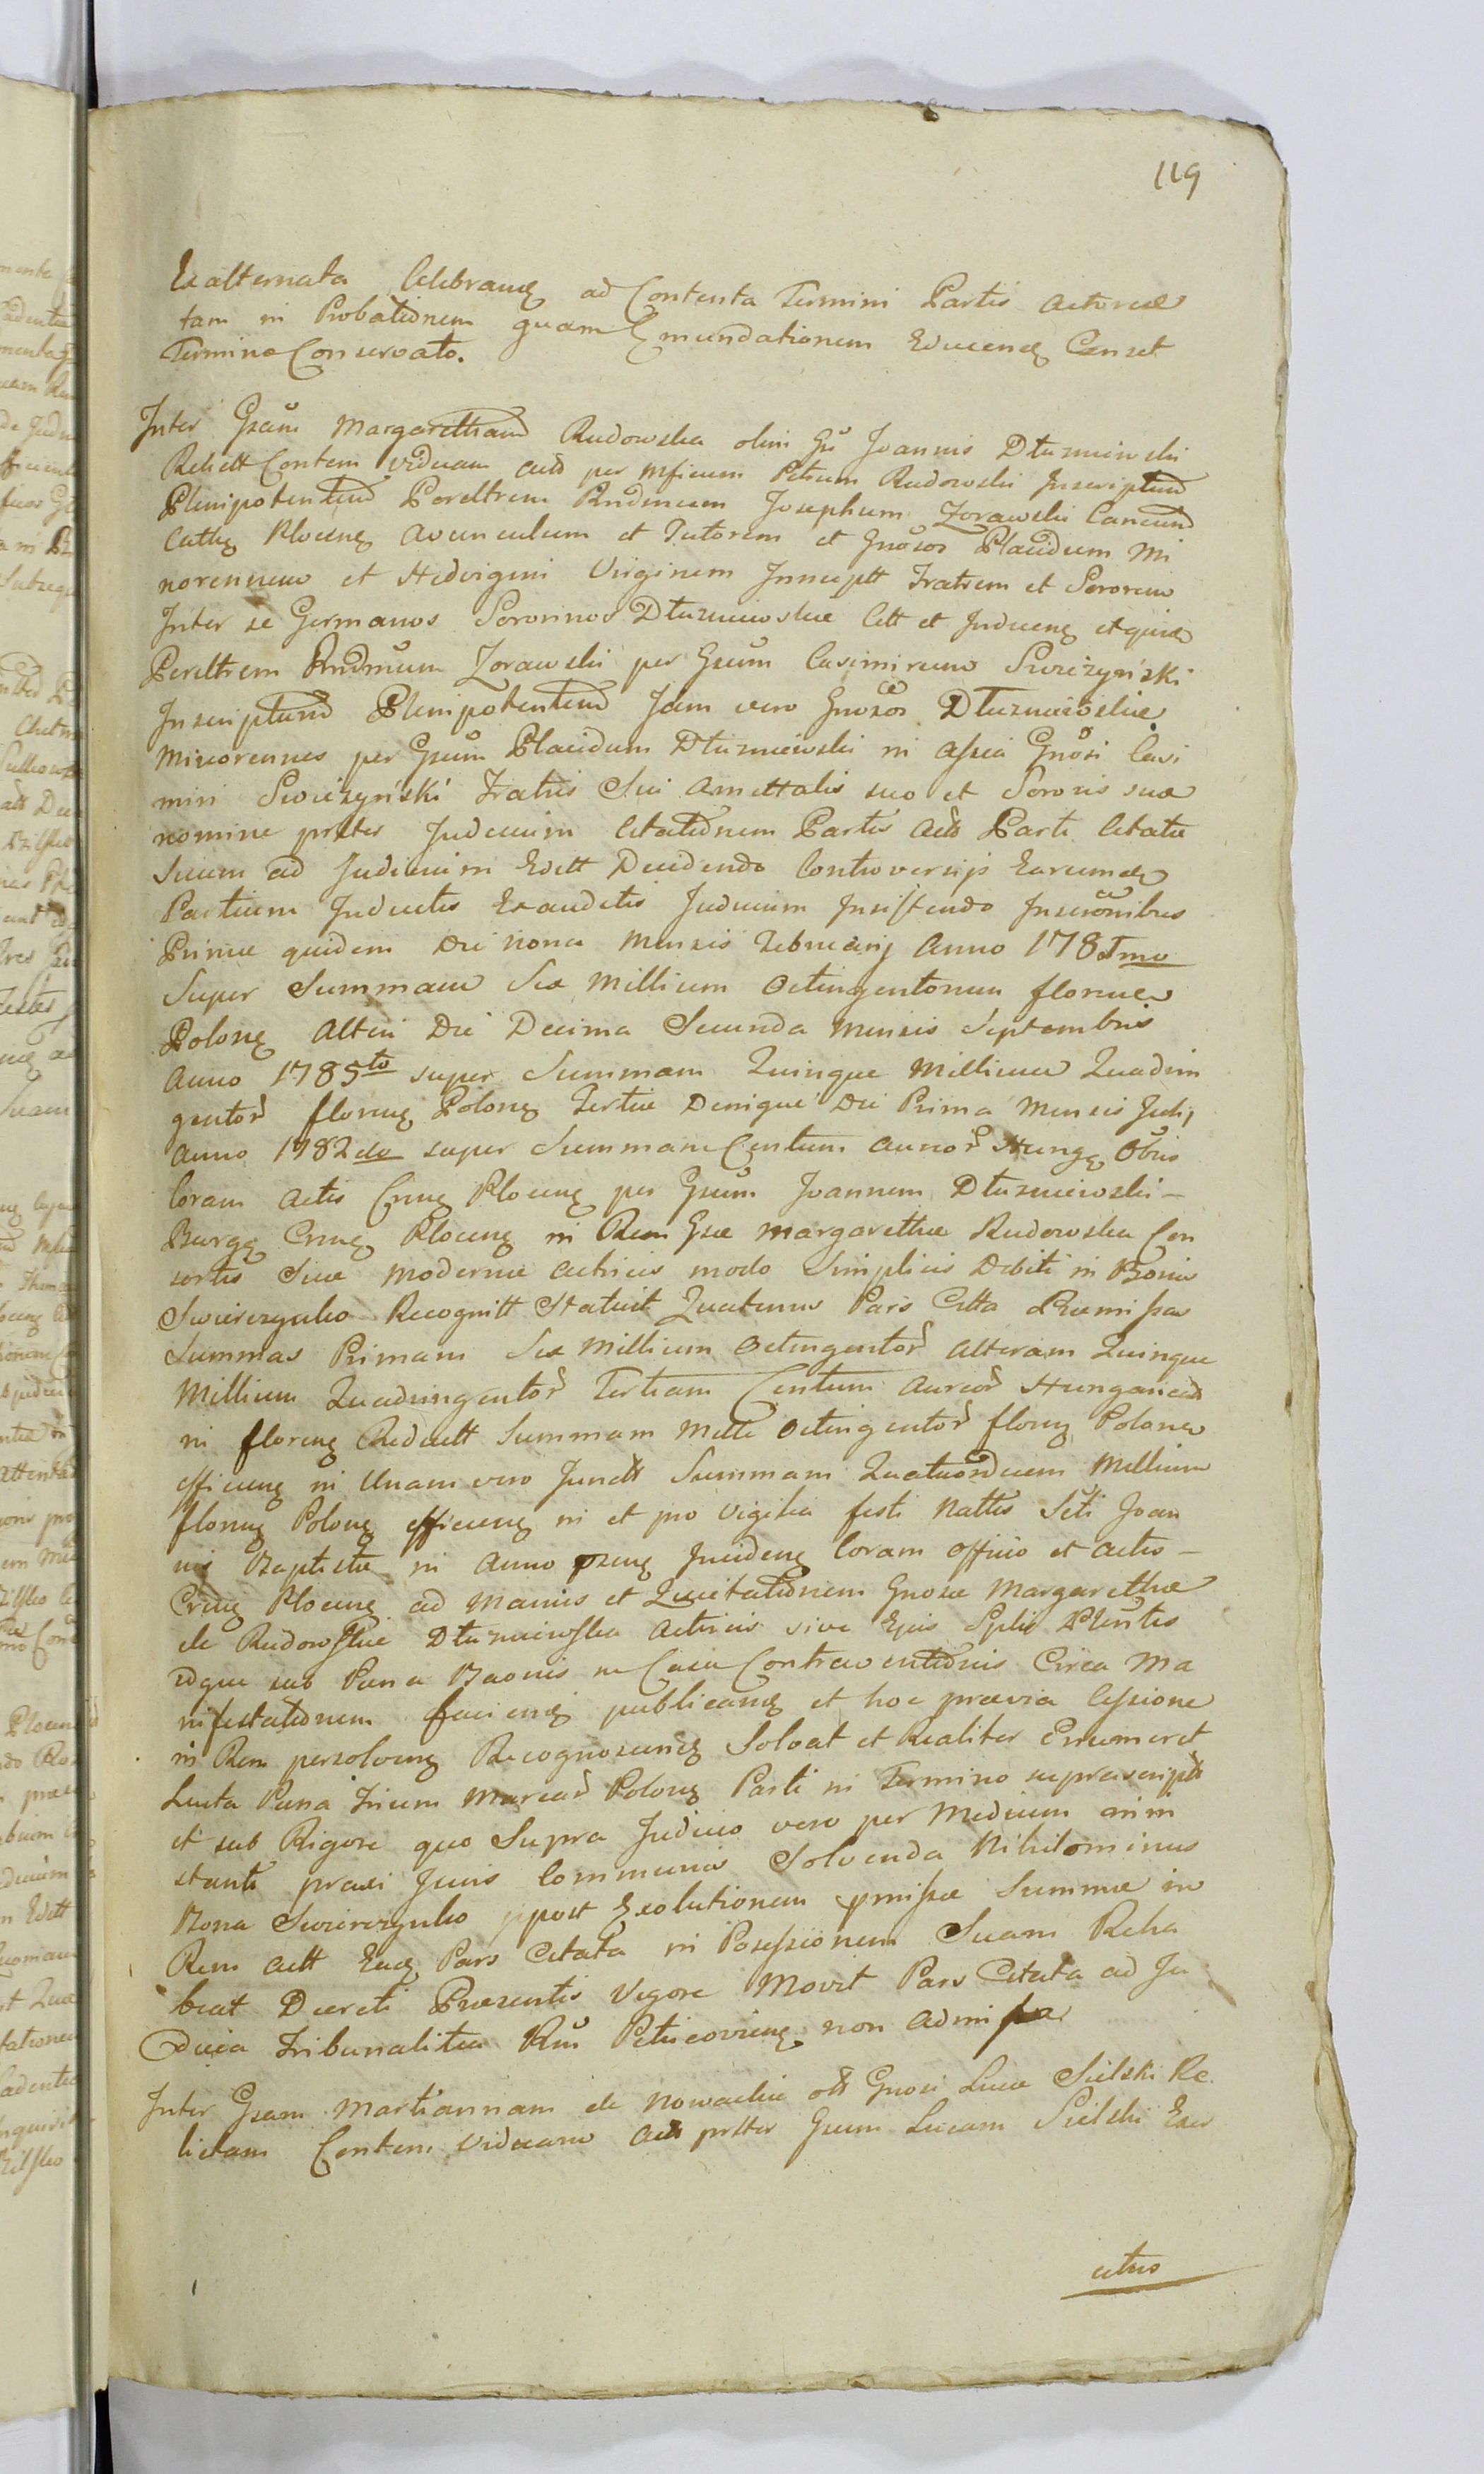 119
Exalternata Celebrang ad Contenta Termini Partis Actoreæ
tam in Probationem quam Emundationem Educeng Censet
Termino Conservato.
Inter Gsam Margaretham Rudowska olim Gsi Joannis Dłuzniewski
Relictt Contem Viduam per Mficum Petrum Rudowski Inscriptum
Plenipotentem Pereltrem Rndmum Josephum Zorawski Canonum
Cathg Ploceng Avunculum et Tutorem et Gnosos Placidum Mi
norennem et Hedvigem Virginem Innuptt Fratrem et Sororem
Inter se Germanos Sororinos Dłuzniewskie Citt et Induceng
Pereltrem Rndmum Zorawski per Gsum Casimirum Swiezynski
Inscriptum Plenipotentem Jam vero Gnosos Dłuzniewskie
Minorennes per Gsum Placidum Dłuzniewski in Assia Gnosi Casi
miri Swiezynski Fratris Sui Amittalis suo et Sororis suæ
nomine prster Judicium Citationem Partis Partt Citatæ
Suum ad Judicium Editt Decidendo Controversijs Earumg
Partium Inductis Exauditis Judicium Insistendo Inscrōnibus
Primæ quidem Die nona Mensis Februarij Anno
Super Summam Sex Millium Octingentorum florenos
Polong Alteri Die Decima Secunda Mensis Septembris
Anno 1785to super Summam Quinque Millium Quadrin
gentor floreng Polong Tertiæ Denique Die Prima Mensis Julij
Anno 1782do super Summam Centum Aureor Hungg Obris
Coram Actis Crng Ploceng per Gsum Joannem Dłuzniewski -
Burgg Crng Ploceng in Rem Gsæ Margarethæ Rudowska Con
sortis Suæ Modernæ Actricis modo Simplicis Debiti in Bonis
Swierczynko Recognitt Statuit Quatenus Pars Citta Præmissas
Summas Primam Sex Millium Octingentor Alteram Quinque
Millium Quadringentor Tertiam Centum Aureor Hungaricar
in floreng Reductt Summam Mille Octingentor floreng Polonos
efficieng in Unam vero Junctt Summam Quatuordecem Millium
floreng Polong efficieng in et pro Vigilia festi Nattis Scti Joan
nis Baptistæ in Anno præng Incideng Coram Officio et Actis -
Crng Ploceng ad Manus et Quietationem Gnosæ Margarethæ
de Rudowskie Dłuzniewska Actricis sive Ejus Splis Plentis
idque sub Pæna Baonis in Casu Contraventionis Circa Ma
nifestationem facieng publicang et hoc prævia Cessione
in Rem persolveng Recognosceng Solvat et Realiter Enumeret
Lucta Pæna Trium Marcar Polong Parti in Termino supra
et sub Rigore quo Supra Judicio vero per Medium
stante praxi Juris Communis Solvenda Nihilominus
Bona Swierczynko post Exolutionem pmissæ Summæ in
Rem Actt Eang Pars Citata in Possessionem Suam Reha
beat Decreti Præsentis Vigore Movit Pars Citata ad Ju
dicia Tribunalitia Rni Petricovieng non Admissa
Inter Gsam Martiannam de Nowackie olt Gnosi Lucæ Sielski Re.
lictam Contem Viduam prster Gsum Lucam Sielski Exer
citus